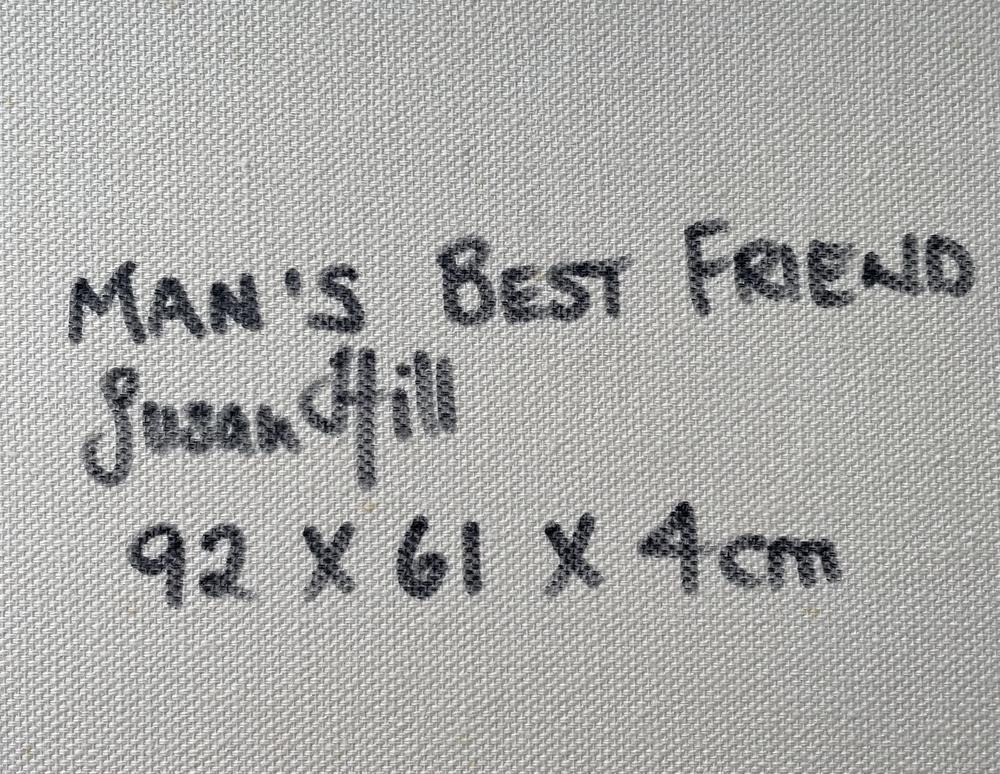 MAN'S BEST FRIEND
Susan Hill
92 X 61 X 4cm